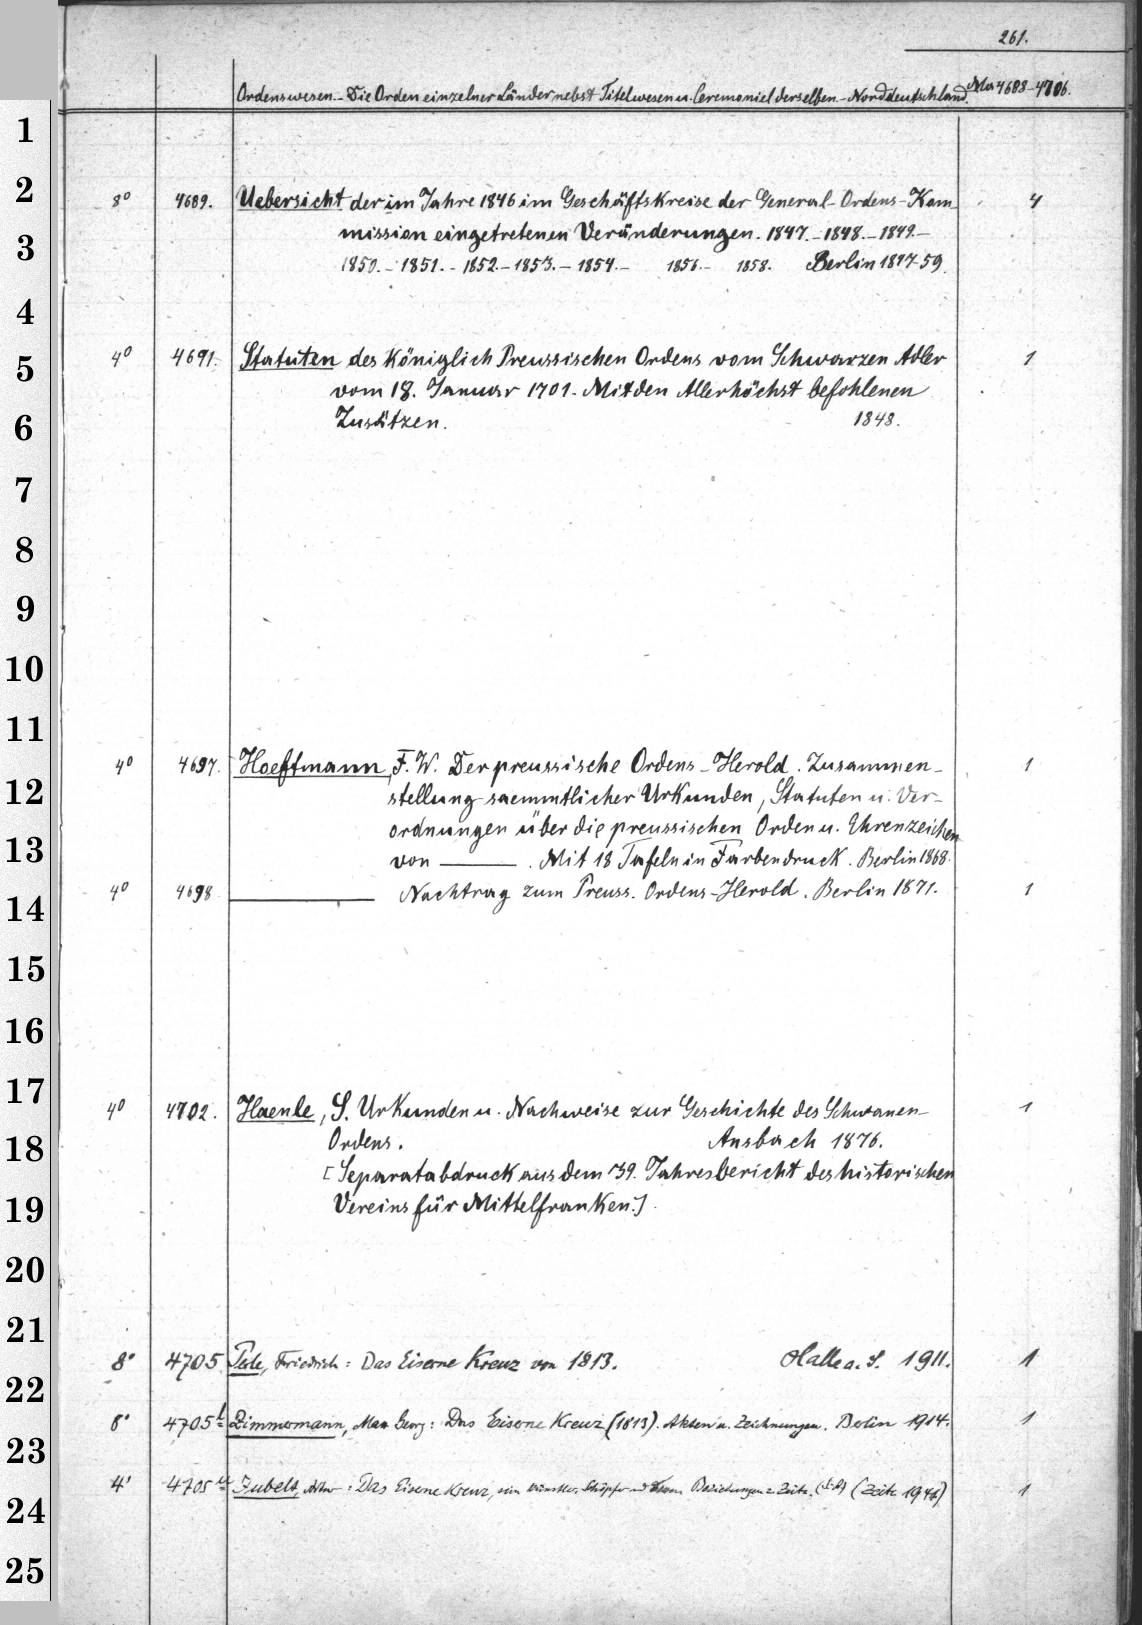 261.
Ordenswesen. - Die Orden einzelner Länder nebst Titelwesen u. Ceremoniel derselben. - Norddeutschland. Nr. 4688-4706.
1
2
8° 4689. Uebersicht der im Jahre 1846 im Geschäftskreise der General-Ordens-Kom 4
mission eingetretenen Veränderungen. 1847. - 1848. - 1849. -
3
1850. - 1851. - 1852. - 1853. - 1854. - 1856. - 1858. Berlin 1847-59.
4
4° 4691. Statuten des Königlich Preussischen Ordens vom Schwarzen Adler 1
5
vom 18. Januar 1701. Mit den Allerhöchst befohlenen
6
Zusätzen. 1848.
7
8
9
10
11
4° 4697. Hoeftmann, F. W. Der preussische Ordens-Herold. Zusammen- 1
12
stellung saemmtlicher Urkunden, Statuten u. Ver-
ordnungen über die preussischen Orden u. Ehrenzeichen
13
von ——— . Mit 18 Tafeln in Farbendruck. Berlin 1868.
4° 4698 ——— Nachtrag zum Preuss. Ordens-Herold. Berlin 1871. 1
14
15
16
17
4° 4702. Haenle, S. Urkunden u. Nachweise zur Geschichte des Schwanen- 1
18
Ordens. Ansbach 1876.
[Separatabdruck aus dem 39. Jahresbericht des historischen
19
Vereins für Mittelfranken.]
20
21
8° 4705 Friedrich: Das Eiserne Kreuz von 1813. Halle a. S. 1911. 1
22
8° 4705 Zimmermann, Max Georg: Das Eiserne Kreuz (1813). Akten u. Zeichnungen. Berlin 1914. 1
23
4° 4705 Jubelt, Arthur: Das Eiserne Kreuz, sein Schöpfer und Beziehungen z. Zeitz. (Zeitz 1946) 1
24
25